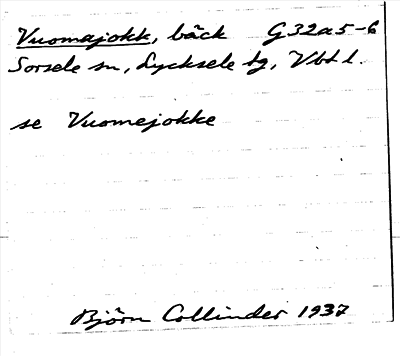 Vuomajokk, bäck G32a5-6
Sorsele sn, Lycksele tg, Vbt l.
se Vuomejokke
Björn Collinder 1937